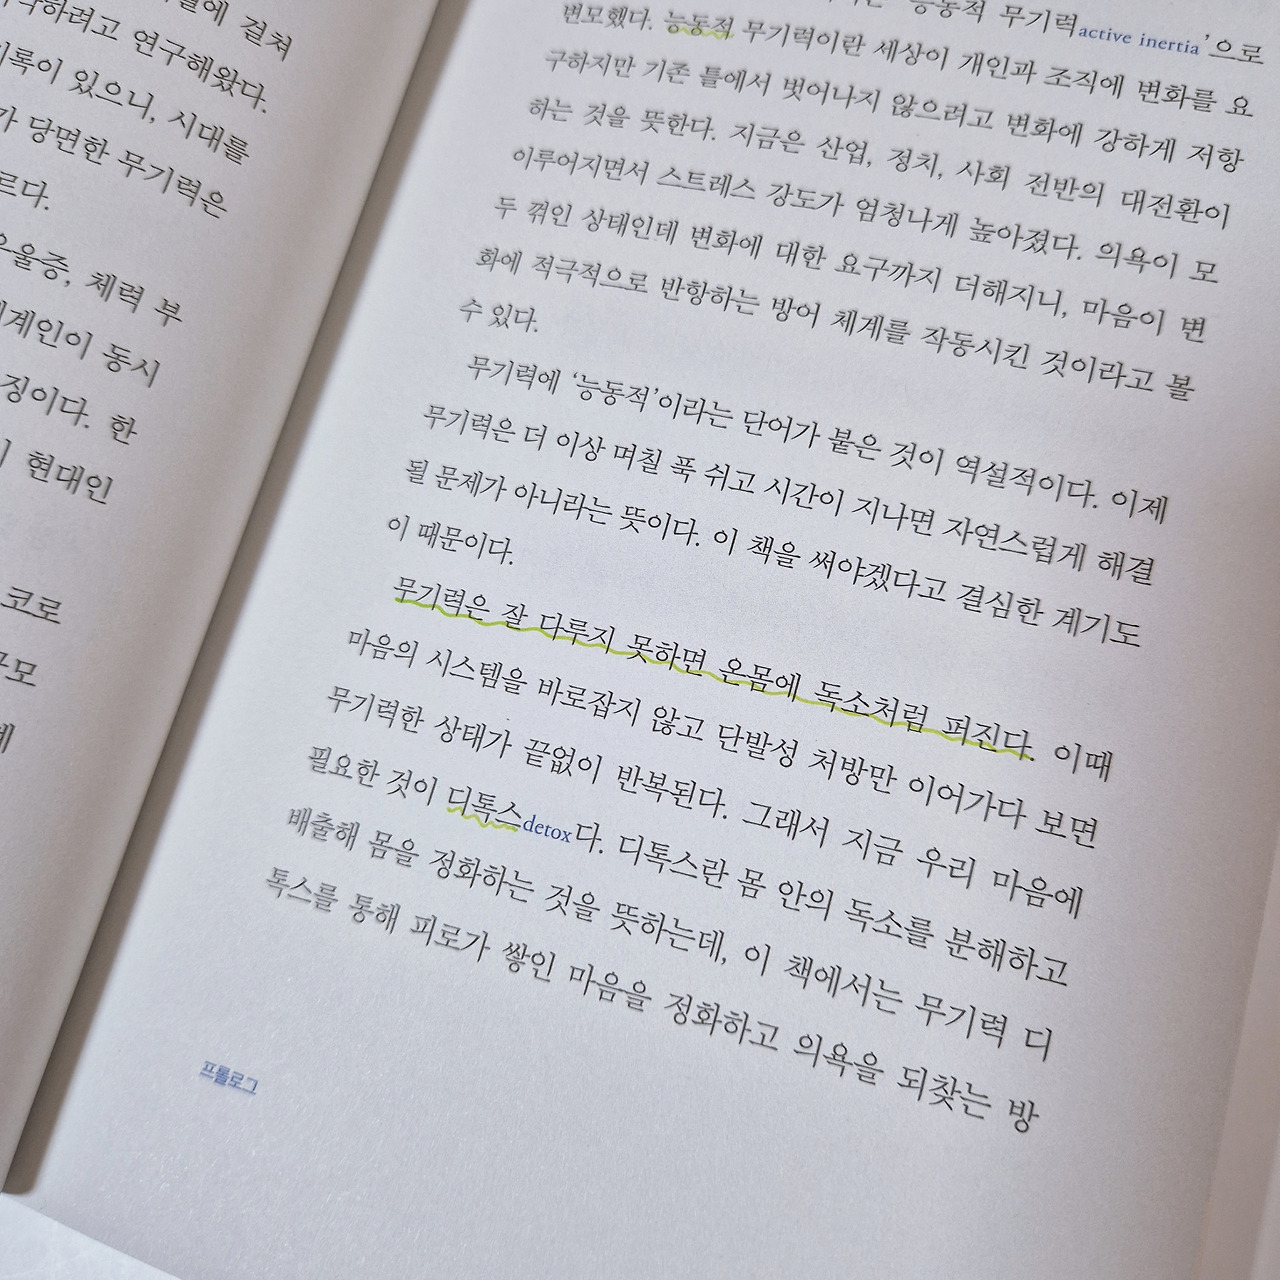 걸쳐
연구해왔다.
있으니, 시대를
당면한 무기력은
체력 부
동시
한
현대인
코로
능동적 무기력active inertia’으로
변모했다. 능동적 무기력이란 세상이 개인과 조직에 변화를 요
구하지만 기존 틀에서 벗어나지 않으려고 변화에 강하게 저항
하는 것을 뜻한다. 지금은 산업, 정치, 사회 전반의 대전환이
이루어지면서 스트레스 강도가 엄청나게 높아졌다. 의욕이 모
두 꺾인 상태인데 변화에 대한 요구까지 더해지니, 마음이 변
화에 적극적으로 반항하는 방어 체계를 작동시킨 것이라고 볼
수 있다.
무기력에 ‘능동적’이라는 단어가 붙은 것이 역설적이다. 이제
무기력은 더 이상 며칠 푹 쉬고 시간이 지나면 자연스럽게 해결
될 문제가 아니라는 뜻이다. 이 책을 써야겠다고 결심한 계기도
이 때문이다.
무기력은 잘 다루지 못하면 온몸에 독소처럼 퍼진다. 이때
마음의 시스템을 바로잡지 않고 단발성 처방만 이어가다 보면
무기력한 상태가 끝없이 반복된다. 그래서 지금 우리 마음에
필요한 것이 디톡스detox다. 디톡스란 몸 안의 독소를 분해하고
배출해 몸을 정화하는 것을 뜻하는데, 이 책에서는 무기력 디
톡스를 통해 피로가 쌓인 마음을 정화하고 의욕을 되찾는 방
프롤로그